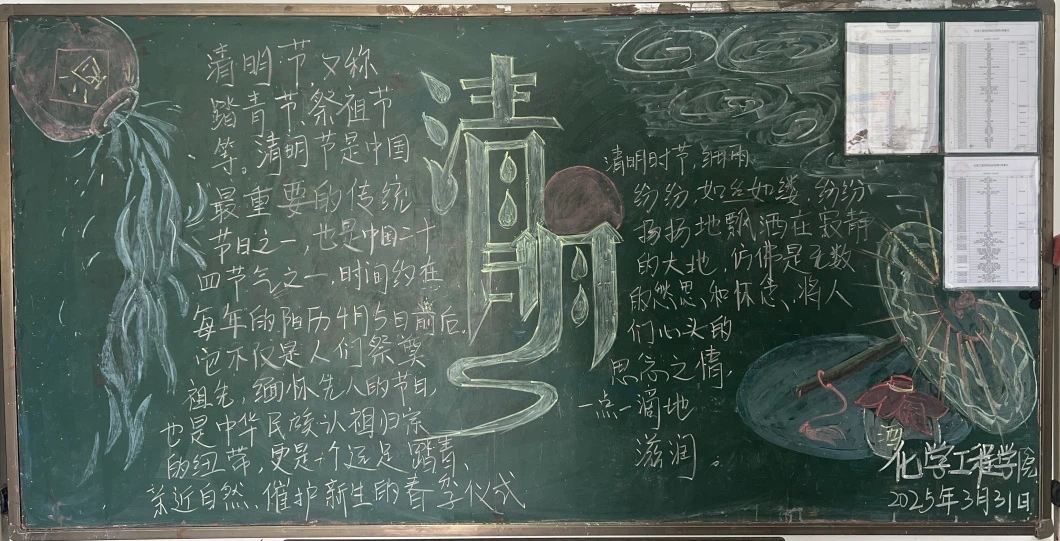 清明节又称
踏青节、祭祖节
等。清明节是中国
最重要的传统
节日之一,也是中国二十
四节气之一,时间约在
每年的阳历4月5日前后.
它不仅是人们祭奠
祖先,缅怀先人的节日,
也是中华民族认祖归宗
的纽带,更是一个远足踏青、
亲近自然、催护新生的春季仪式
清明
清明时节,细雨
纷纷,如丝如缕,纷纷
扬扬地飘洒在寂静
的大地,仿佛是无数
的愁思和怀念,将人
们心头的
思念之情,
一点一滴地
滋润。
酒
化学工程学院
2025年3月31日